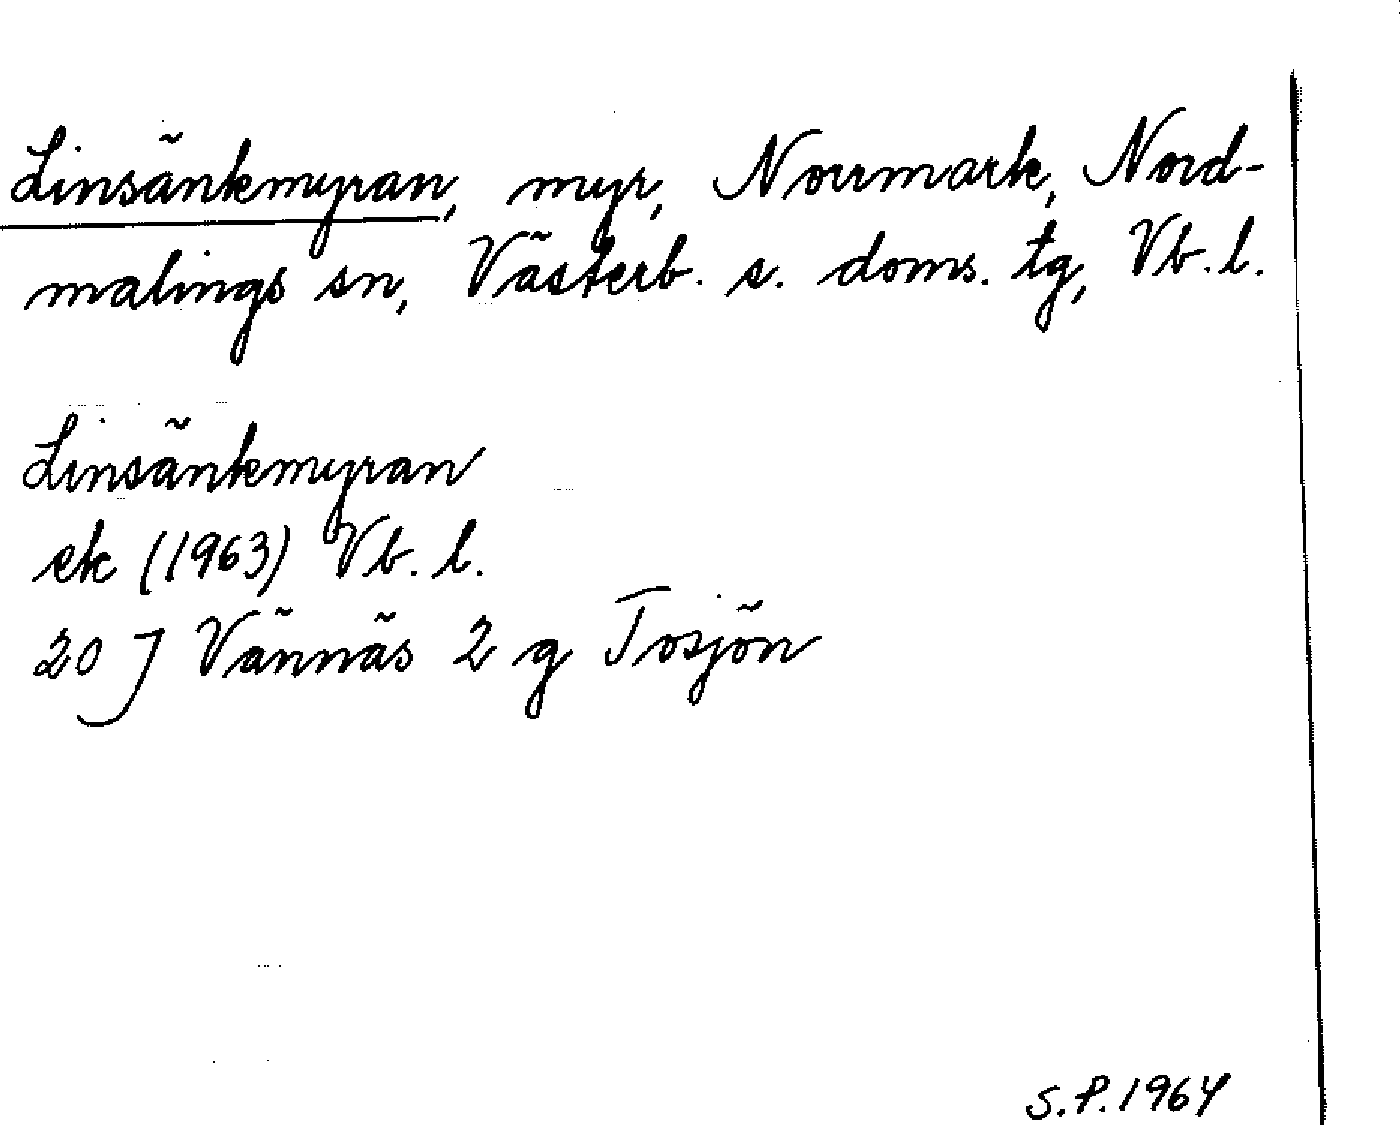 Linsänkmyran, myr, Norrmark, Nord-
malings sn, Västerb. s. doms. tg, Vb. l.
Linsänkmyran
ek (1963) Vb. l.
20 J Vännäs 2 g Tosjön
S.P. 1964